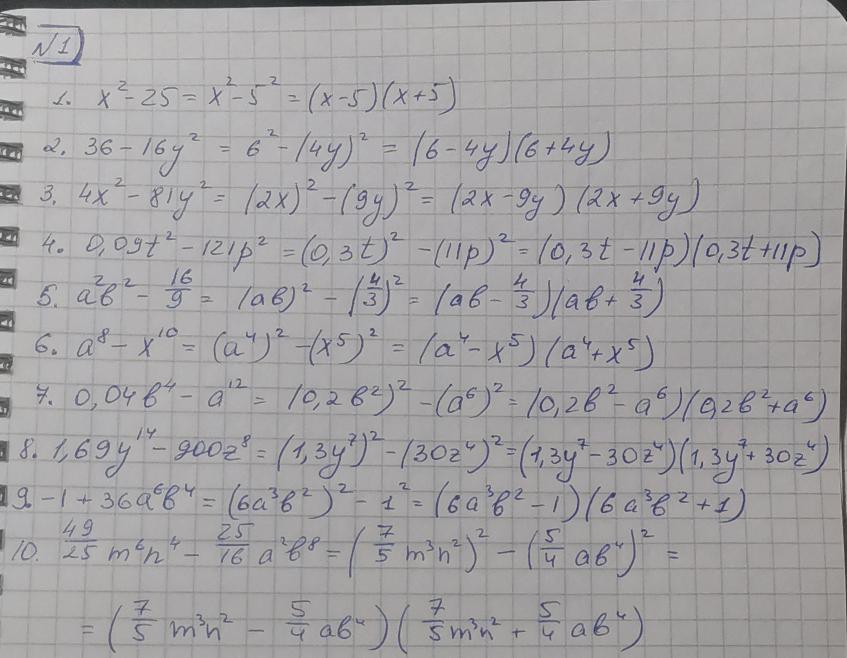 N1
1. x² - 25 = x² - 5² = (x-5)(x+5)
2. 36 - 16y² = 6² - (4y)² = (6-4y)(6+4y)
3. 4x² - 81y² = (2x)² - (9y)² = (2x-9y)(2x+9y)
4. 0,09t² - 121p² = (0,3t)² - (11p)² = (0,3t - 11p)(0,3t+11p)
5. a²b² - 16/9 = (ab)² - (4/3)² = (ab - 4/3)(ab + 4/3)
6. a⁸ - x¹⁰ = (a⁴)² - (x⁵)² = (a⁴ - x⁵)(a⁴ + x⁵)
7. 0,04b⁴ - a¹² = (0,2b²)² - (a⁶)² = (0,2b² - a⁶)(0,2b² + a⁶)
8. 1,69y¹⁴ - 900z⁸ = (1,3y⁷)² - (30z⁴)² = (1,3y⁷ - 30z⁴)(1,3y⁷ + 30z⁴)
9. -1 + 36a⁶b⁴ = (6a³b²)² - 1² = (6a³b² - 1)(6a³b² + 1)
10. 49/25 m⁶n⁴ - 25/16 a²b⁸ = (7/5 m³n²)² - (5/4 ab⁴)² =
= (7/5 m³n² - 5/4 ab⁴)(7/5 m³n² + 5/4 ab⁴)